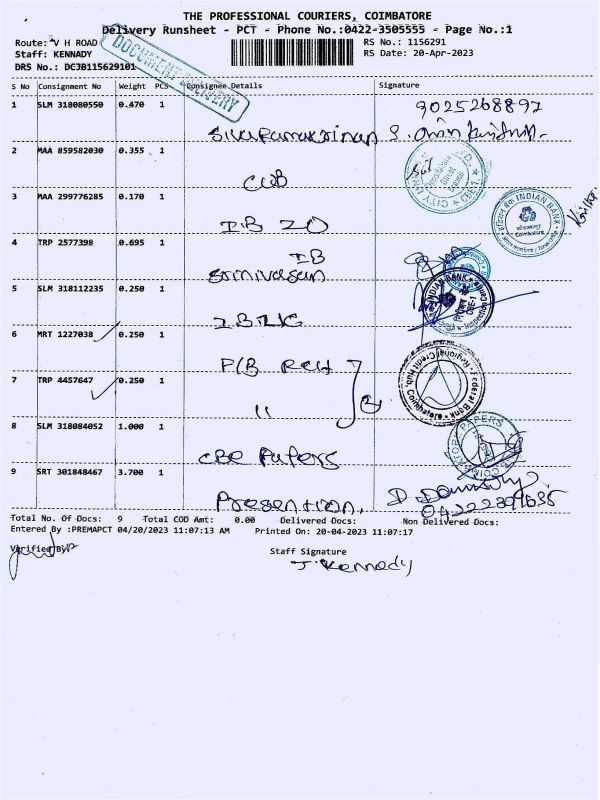 THE PROFESSIONAL COURIERS, COIMBATORE
Delivery Runsheet - PCT - Phone No.:0422-3505555 - Page No.:1
Route: V H ROAD
RS No.: 1156291
Staff: KENNADY
RS Date: 20-Apr-2023
DRS No.: DCJB115629101
DOCUMENT DELIVERY
S No Consignment No Weight PCS Consignee Details Signature
1 SLM 318080550 0.470 1
9025268897
2 MAA 859582030 0.355 1
CUB
3 MAA 299776285 0.170 1
INDIAN BANK
Coimbatore
4 TRP 2577398 0.695 1
IB
Srinivasan
5 SLM 318112235 0.250 1
INDIAN BANK
CBE-1
6 MRT 1227038 0.250 1
7 TRP 4457647 0.250 1
"
Federal Bank
Regional Credit Hub,
Coimbatore
8 SLM 318084052 1.000 1
CBE Papers
9 SRT 301848467 3.700 1
Total No. Of Docs: 9 Total COD Amt: 0.00 Delivered Docs: Non Delivered Docs:
Entered By :PREMAPCT 04/20/2023 11:07:13 AM Printed On: 20-04-2023 11:07:17
Verified By
Staff Signature
J. Kennady